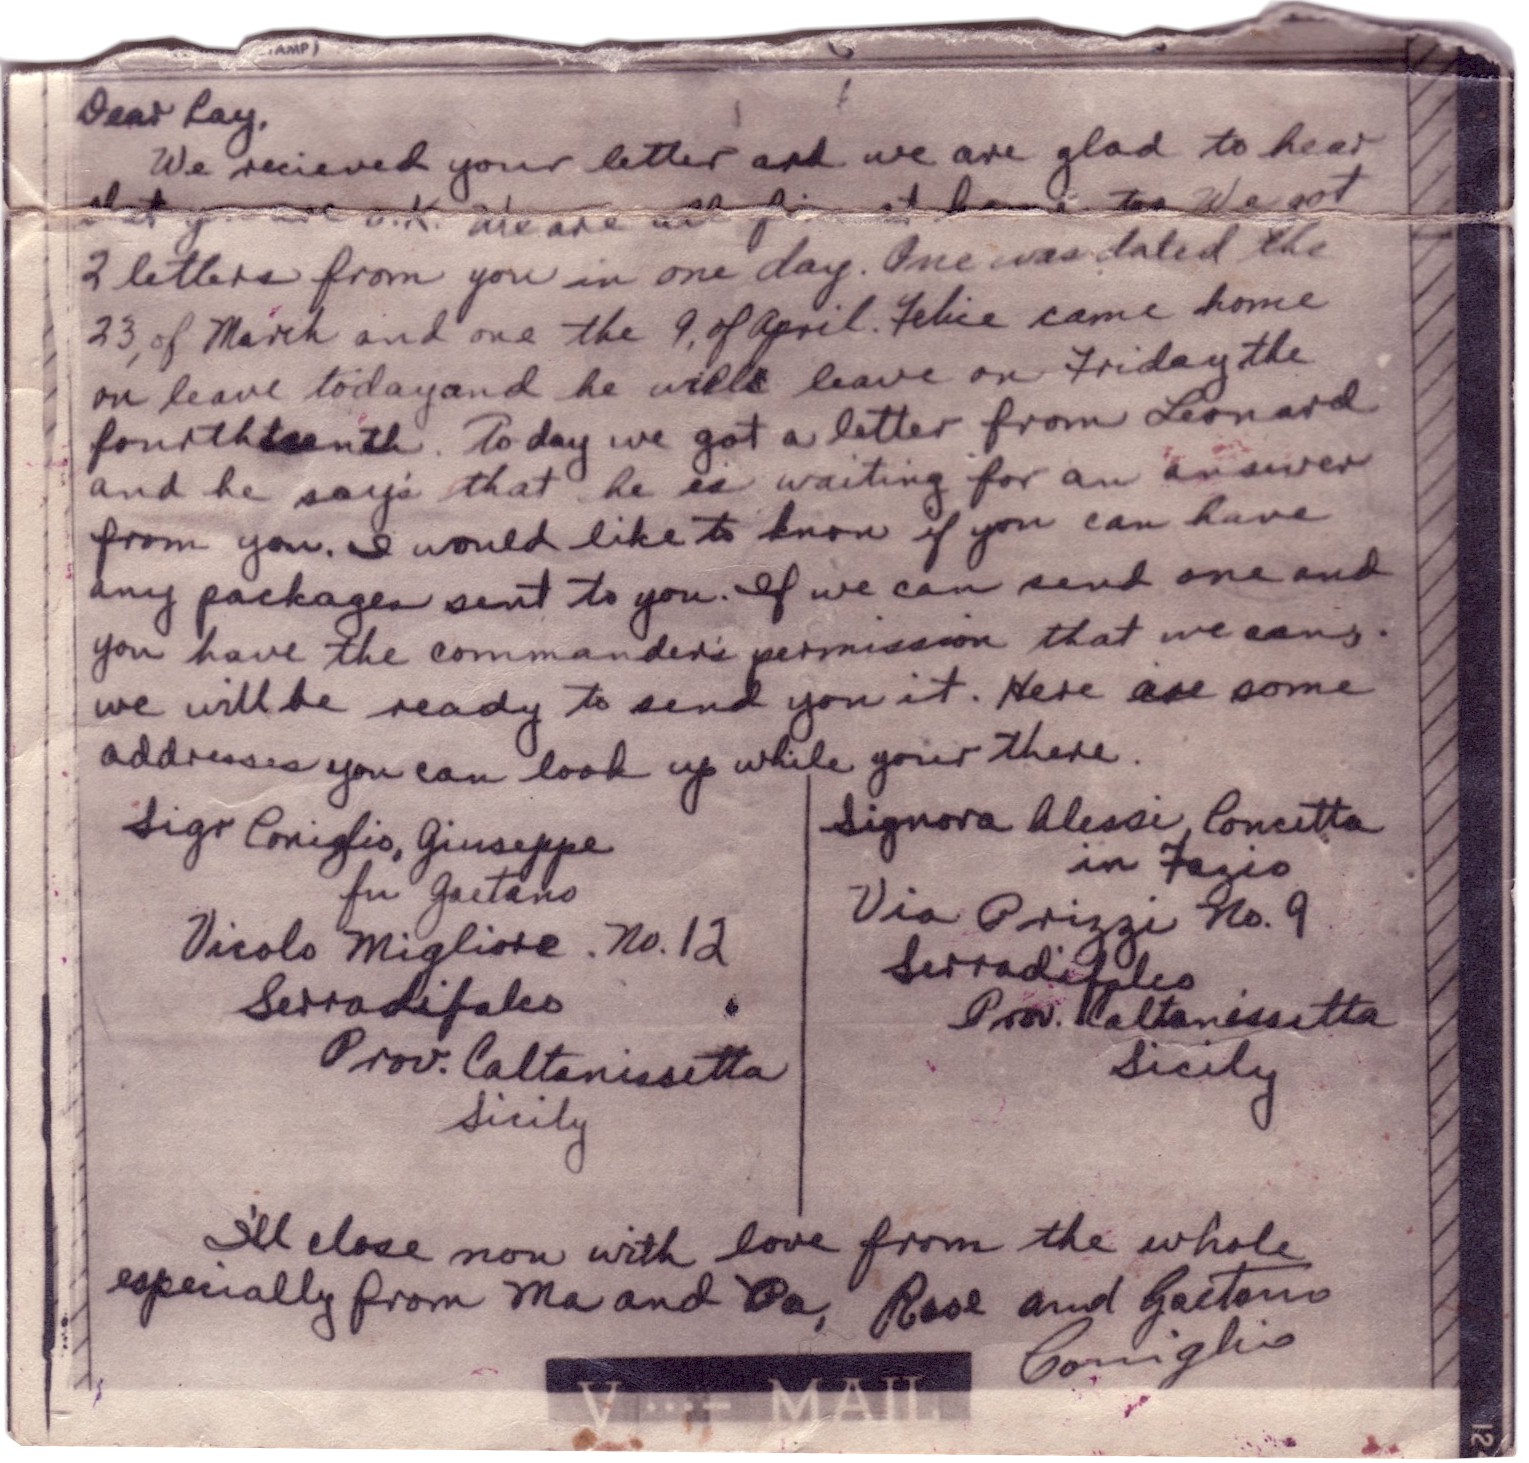 AMP)
Dear Ray,
We recieved your letter and we are glad to hear
that you are O.K. We are all fine at home too We got
2 letters from you in one day. One was dated the
23, of March and one the 9, of April. Felice came home
on leave today and he will leave on Friday the
fourthteenth. Today we got a letter from Leonard
and he say's that he is waiting for an answer
from you. I would like to know if you can have
any packages sent to you. If we can send one and
you have the commander's permission that we can,
we will be ready to send you it. Here are some
addresses you can look up while your there.
Sigr Coniglio, Giuseppe
fu Gaetano
Vicolo Migliore. No. 12
Serradifalco
Prov. Caltanissetta
Sicily
Signora Alessi, Concetta
in Fazio
Via Prizzi No. 9
Serradifalco
Prov. Caltanissetta
Sicily
I'll close now with love from the whole
especially from Ma and Pa, Rose and Gaetano
Coniglio
V ...- MAIL
12